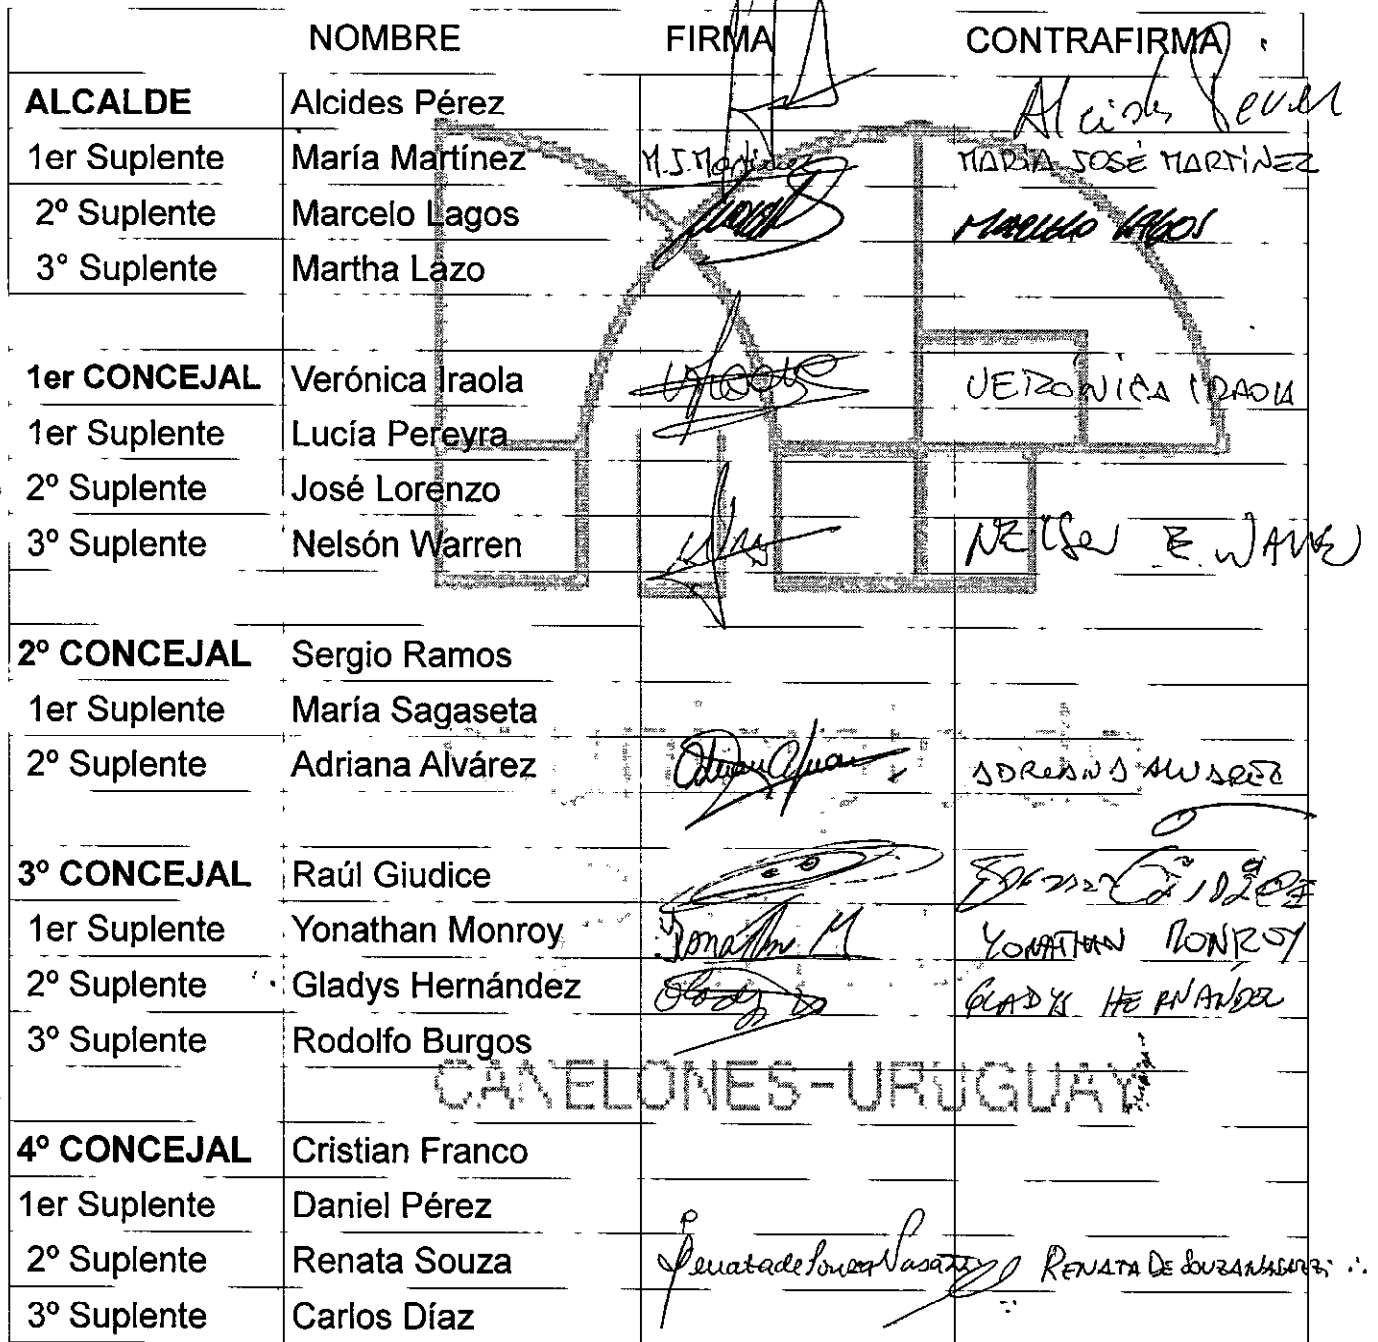 NOMBRE FIRMA CONTRAFIRMA
ALCALDE Alcides Pérez Alcides
1er Suplente María Martínez M.J.Martínez MARÍA JOSÉ MARTÍNEZ
2º Suplente Marcelo Lagos MARCELO LAGOS
3° Suplente Martha Lazo
1er CONCEJAL Verónica Iraola VERÓNICA IRAOLA
1er Suplente Lucía Pereyra
2º Suplente José Lorenzo
3º Suplente Nelsón Warren NELSON E. WARREN
2º CONCEJAL Sergio Ramos
1er Suplente María Sagaseta
2º Suplente Adriana Alvárez ADRIANA ALVAREZ
3º CONCEJAL Raúl Giudice
1er Suplente Yonathan Monroy Yonathan M YONATHAN MONROY
2º Suplente Gladys Hernández Gladys GLADYS HERNÁNDEZ
3º Suplente Rodolfo Burgos
CANELONES-URUGUAY
4º CONCEJAL Cristian Franco
1er Suplente Daniel Pérez
2º Suplente Renata Souza Renata de Souza Nasazzi RENATA DE SOUZA NASAZZI
3º Suplente Carlos Díaz